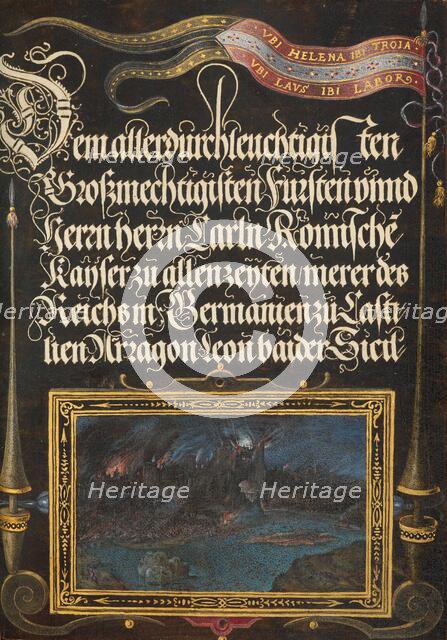 VBI HELENA IBI TROIA
VBI LAVS IBI LABOR.
Dem allerdurchleuchtigisten
Großmechtigisten Fürsten vnnd
Herrn herrn Carln Römischē
Kayser zu allen zeyten merer des
Reichs in Germanien zu Casti
lien Arragon Leon baider Sicil
Heritage Heritage
Heritage Heritage
Heritage Heritage